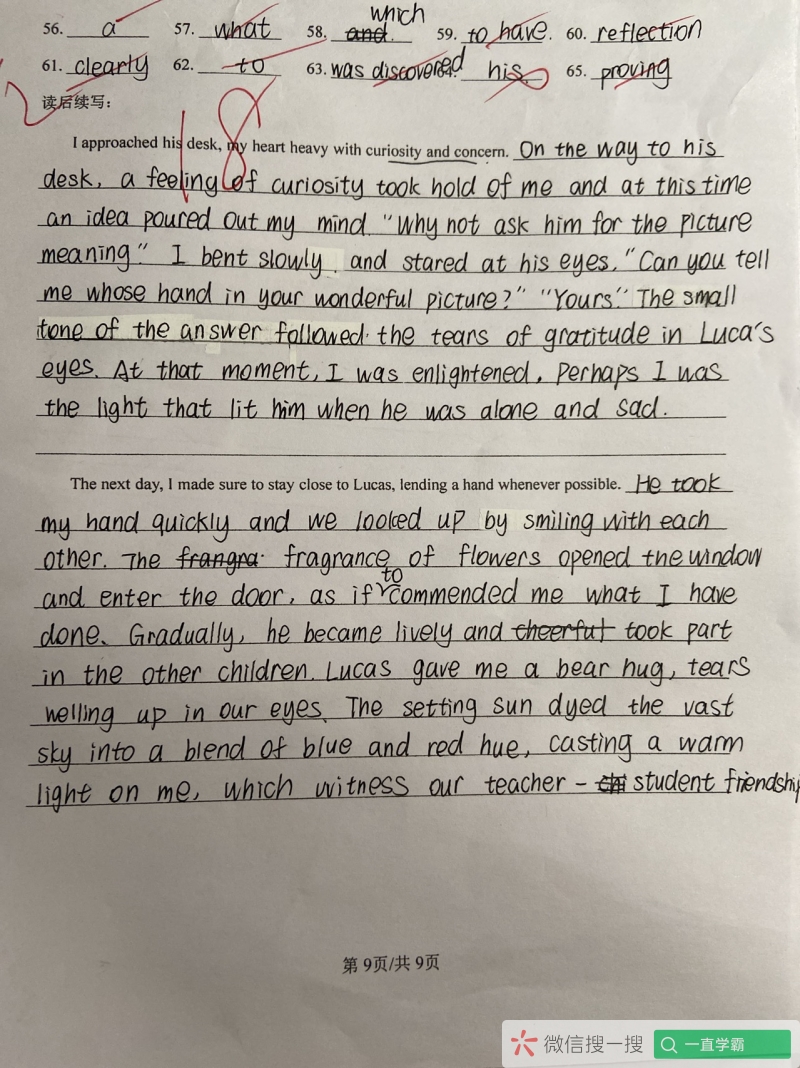 which
56. a 57. what 58. and 59. to have. 60. reflection
61. clearly 62. to 63. was discovered. his 65. proving
读后续写：
18
I approached his desk, my heart heavy with curiosity and concern. On the way to his
desk, a feeling of curiosity took hold of me and at this time
an idea poured out my mind. "Why not ask him for the picture
meaning" I bent slowly and stared at his eyes. "Can you tell
me whose hand in your wonderful picture?" "Yours". The small
tone of the answer followed the tears of gratitude in Luca's
eyes. At that moment, I was enlightened, Perhaps I was
the light that lit him when he was alone and sad.
The next day, I made sure to stay close to Lucas, lending a hand whenever possible. He took
my hand quickly and we looked up by smiling with each
other. The frangra fragrance of flowers opened the window
to
and enter the door, as if commended me what I have
done. Gradually, he became lively and cheerful took part
in the other children. Lucas gave me a bear hug, tears
welling up in our eyes. The setting sun dyed the vast
sky into a blend of blue and red hue, casting a warm
light on me, which witness our teacher - student friendship
第 9页/共 9页
微信搜一搜 一直学霸